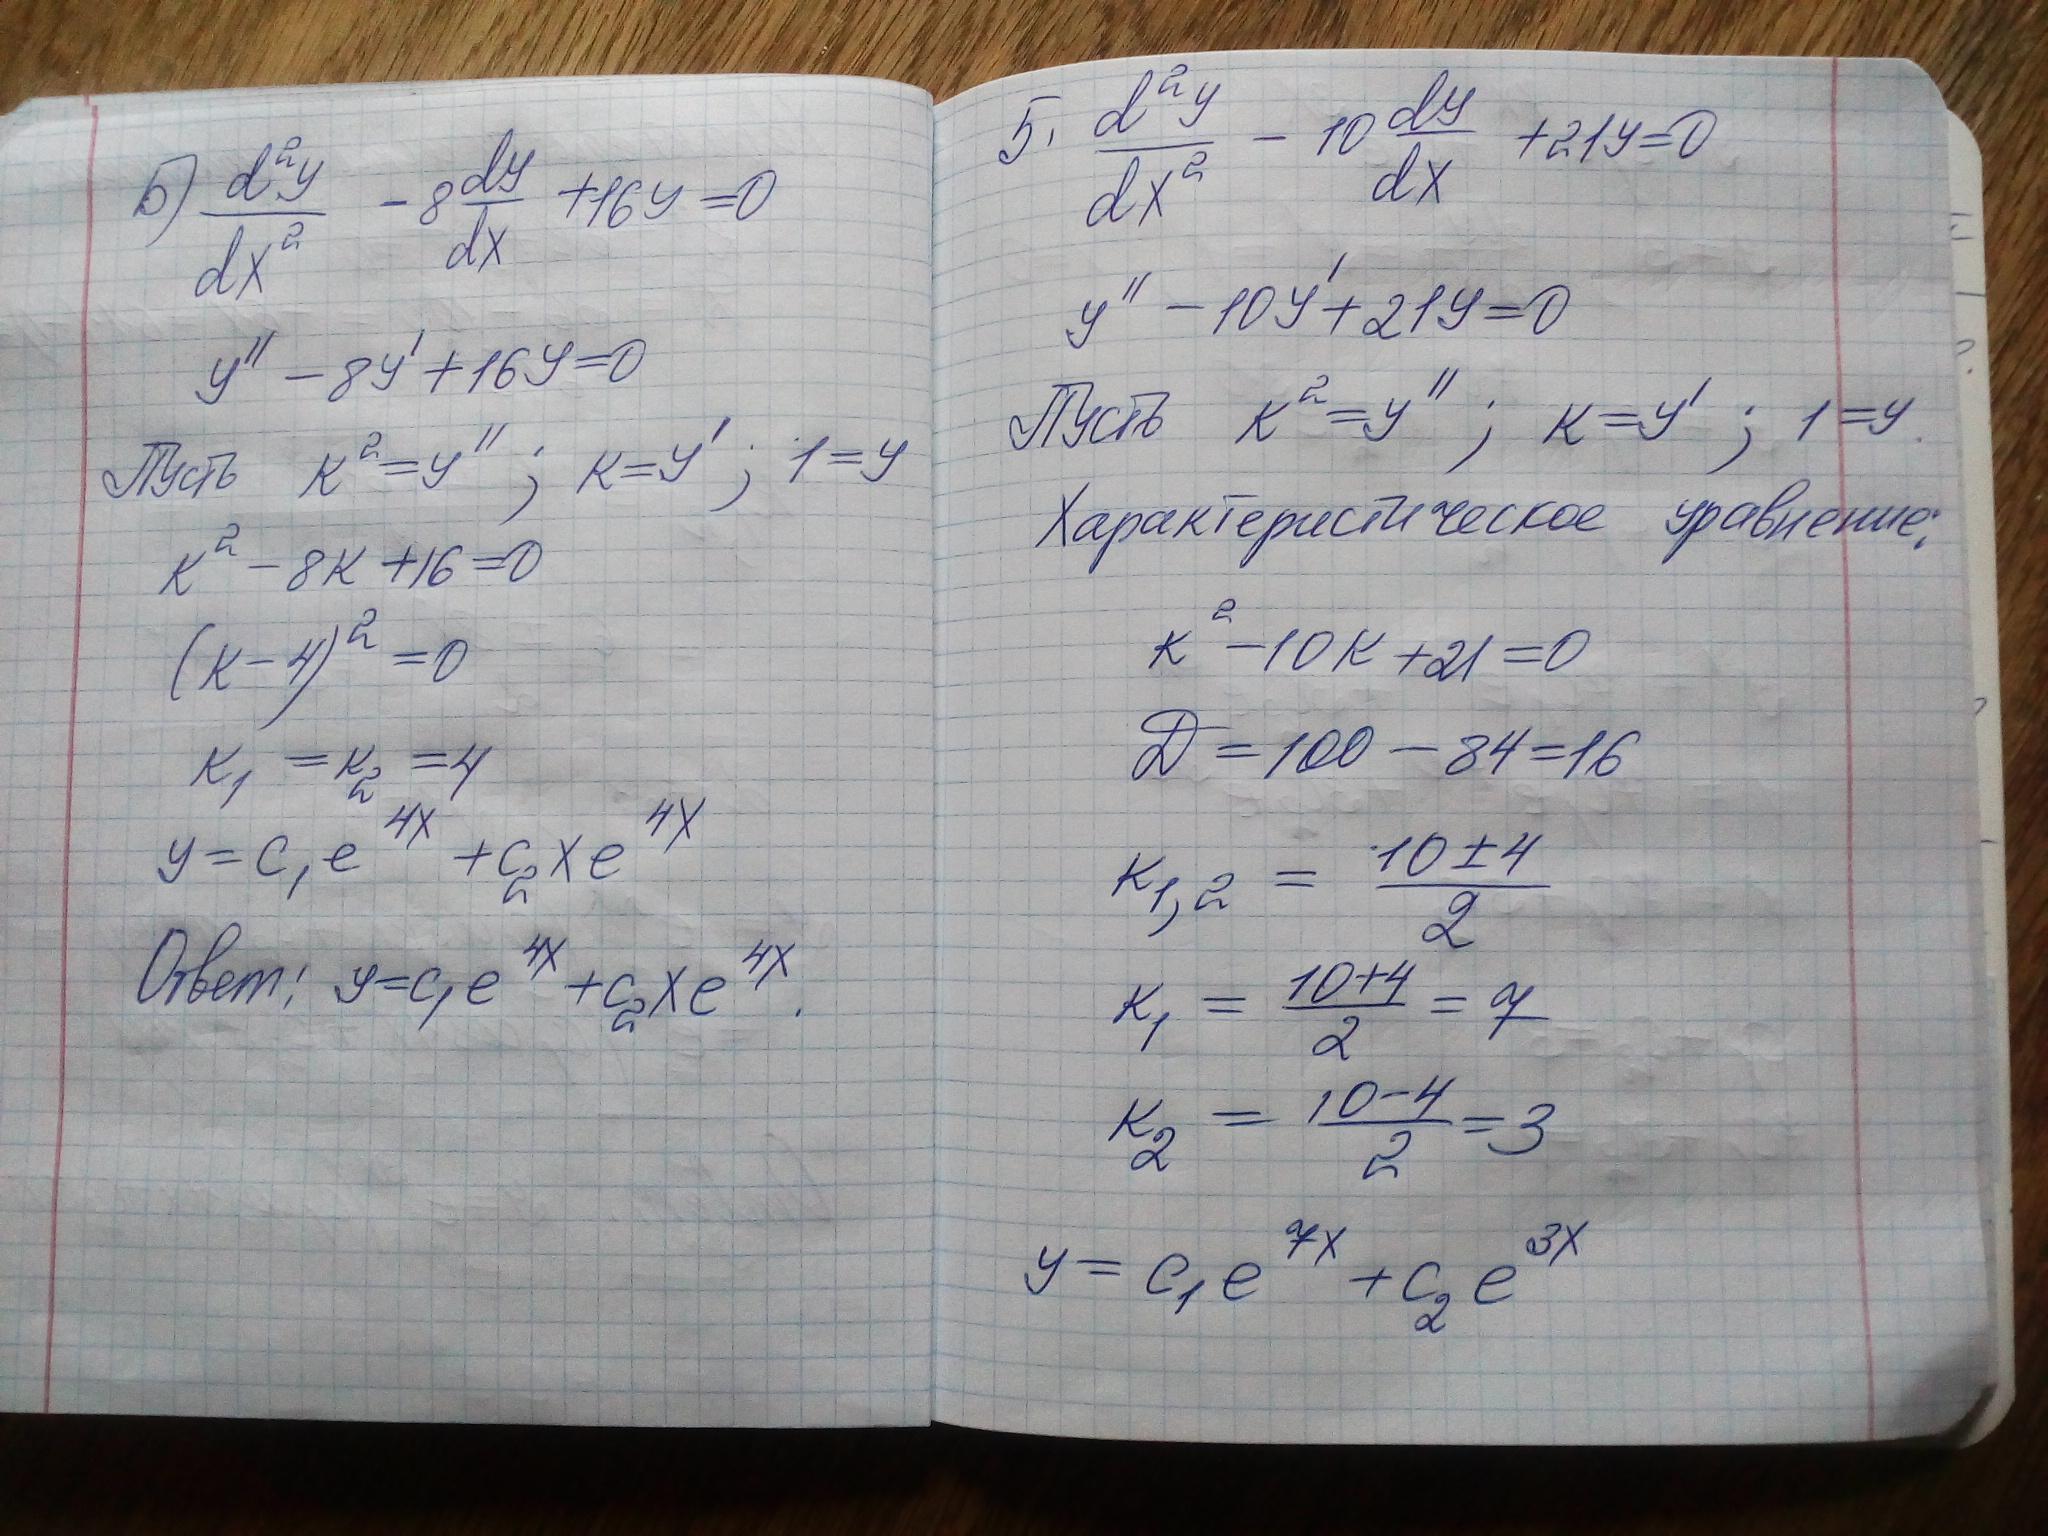 Б) d²y/dx² - 8 dy/dx + 16y = 0
y'' - 8y' + 16y = 0
Пусть к² = y'' ; к = y' ; 1 = y
к² - 8к + 16 = 0
(к - 4)² = 0
к₁ = к₂ = 4
y = c₁e^4x + c₂xe^4x
Ответ: y = c₁e^4x + c₂xe^4x.
5. d²y/dx² - 10 dy/dx + 21y = 0
y'' - 10y' + 21y = 0
Пусть к² = y'' ; к = y' ; 1 = y.
Характеристическое уравнение:
к² - 10к + 21 = 0
D = 100 - 84 = 16
к₁,₂ = (10 ± 4)/2
к₁ = (10+4)/2 = 7
к₂ = (10-4)/2 = 3
y = c₁e^7x + c₂e^3x